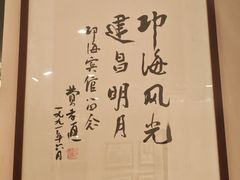 邛海风光
建昌明月
邛海宾馆留念
费孝通
一九九一年六月